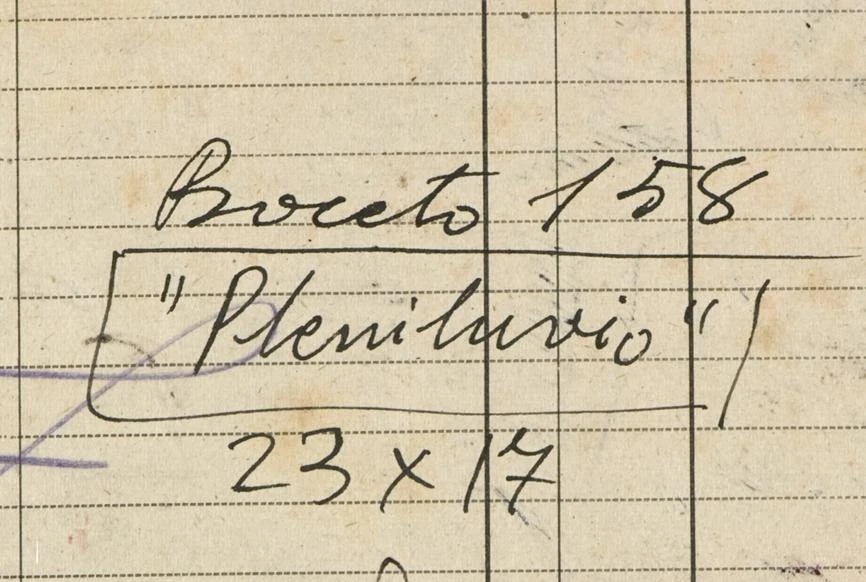 Boceto 158
"Plenilunio"
23 x 17